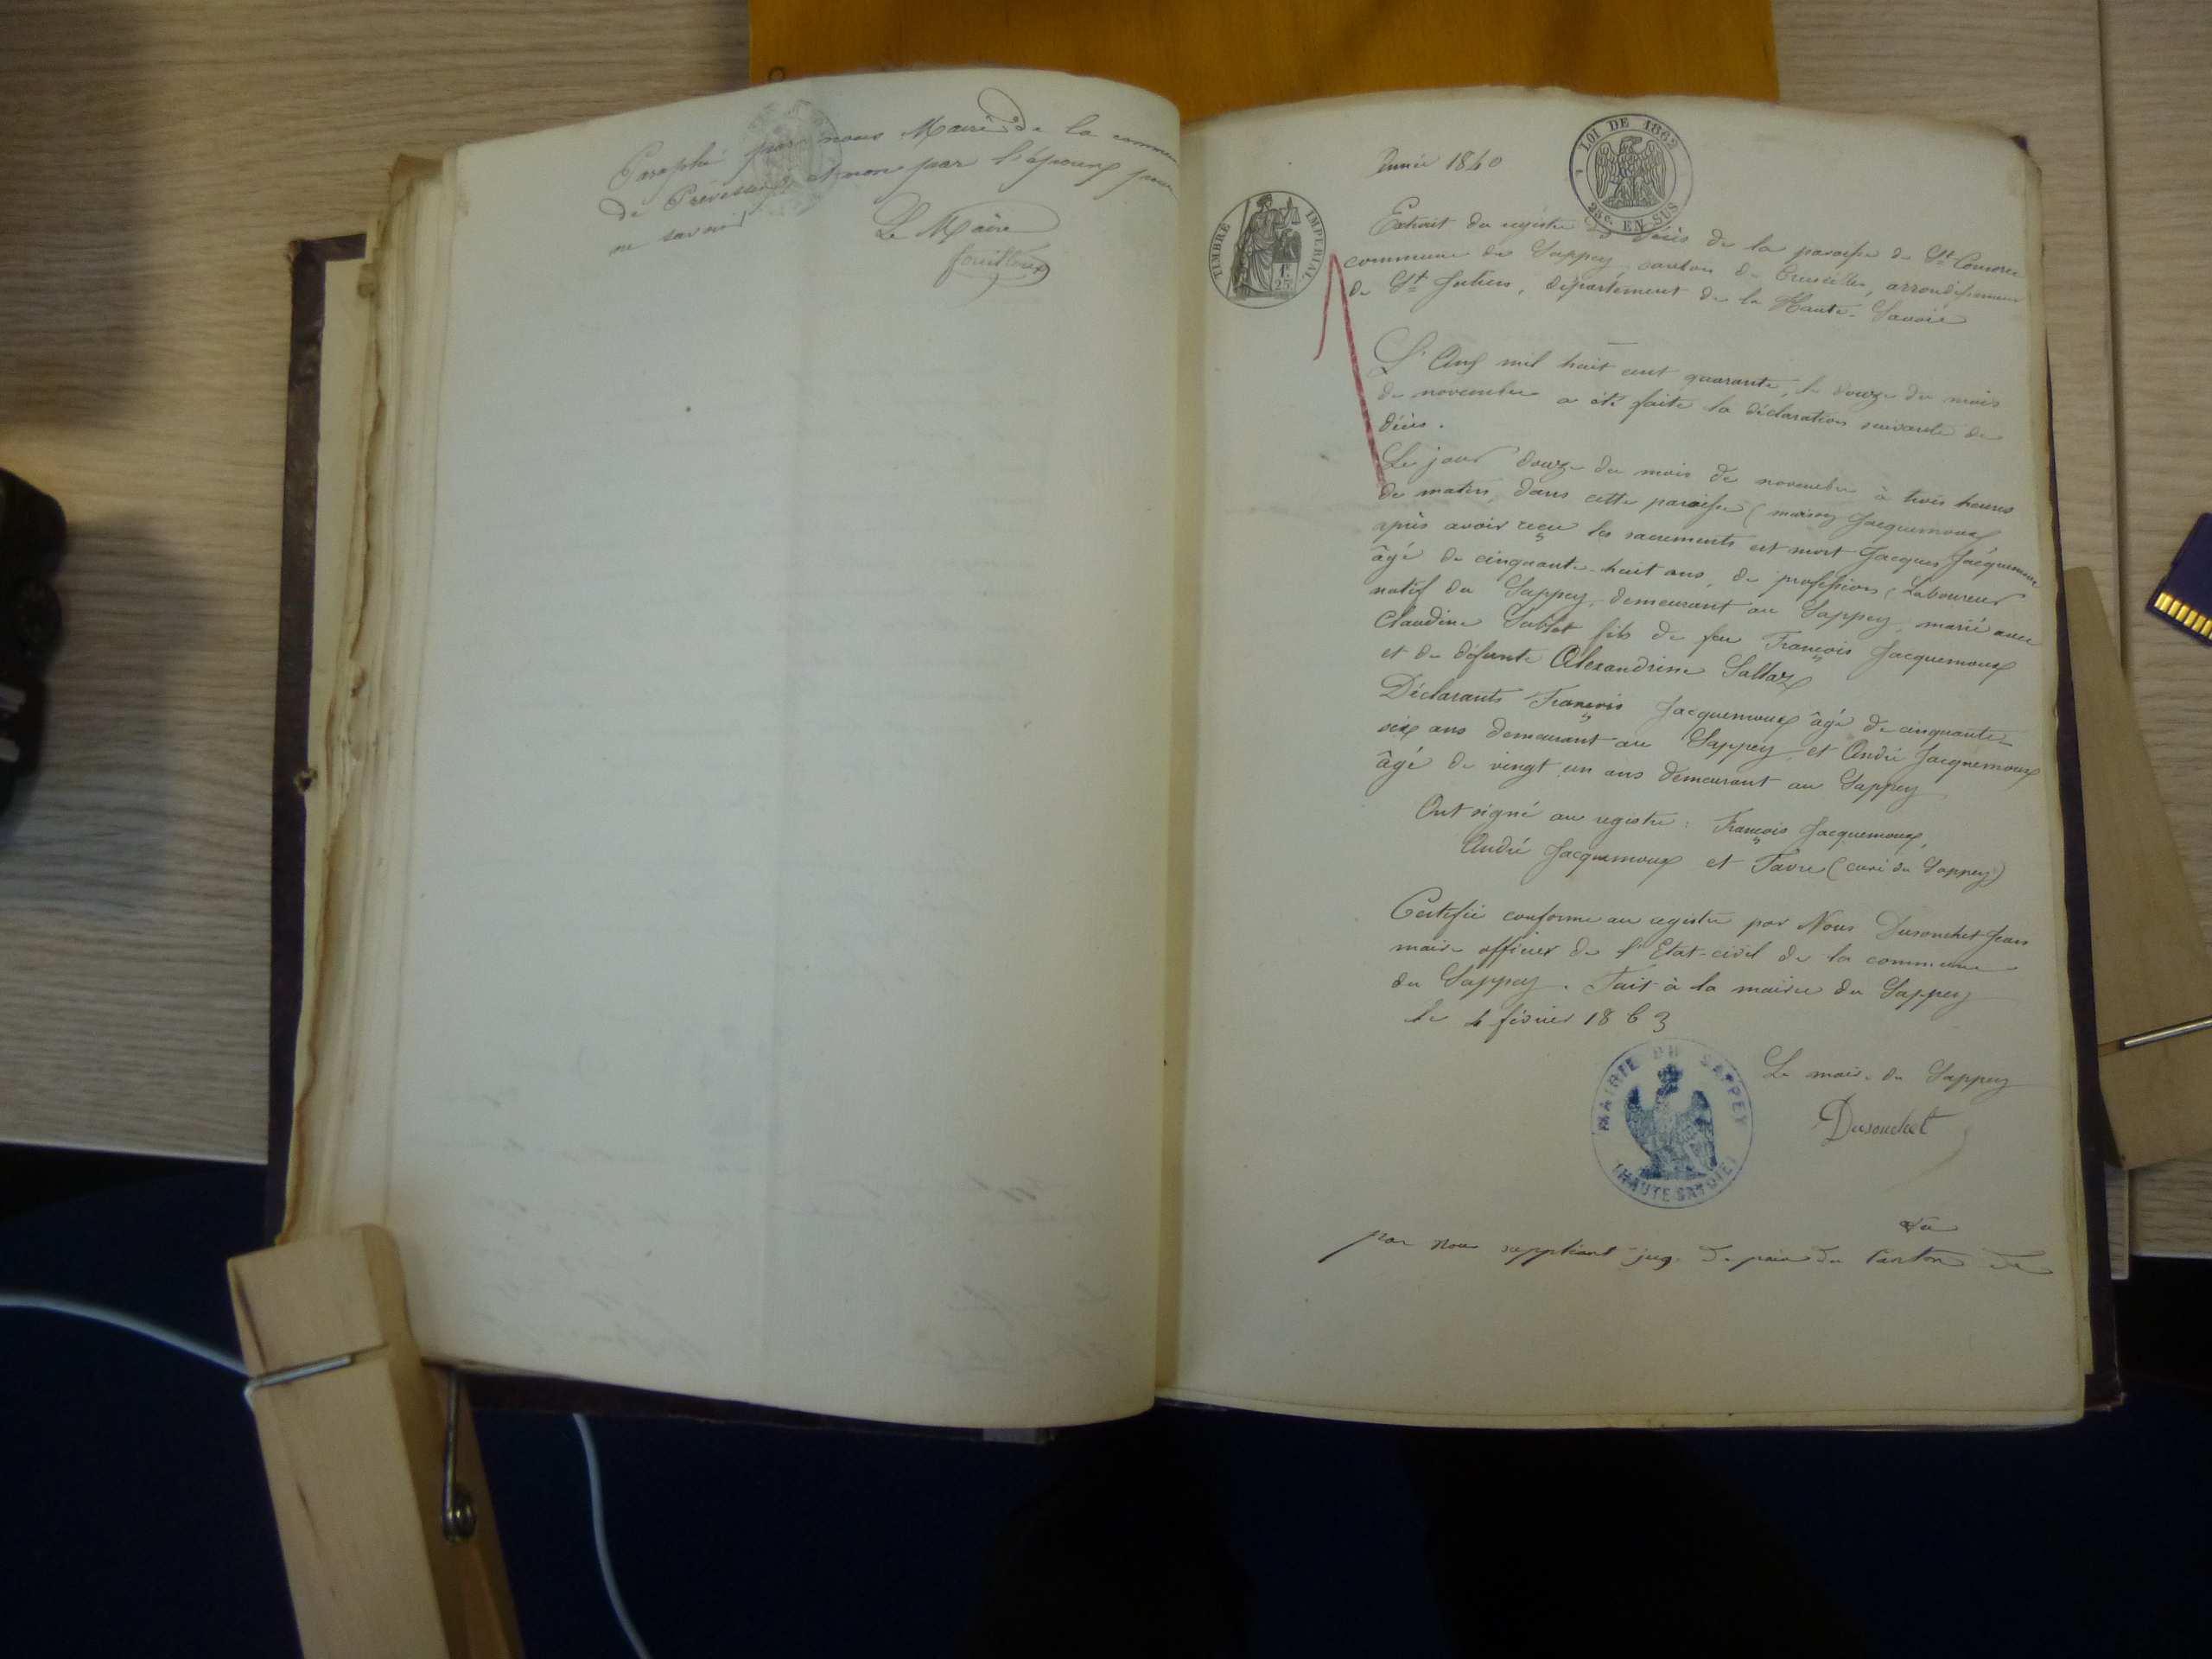 Paraphé par nous Maire de la commune
de Prévessin et non par l'époux pour
ne savoir
Le Maire
fouilloux
Année 1840
LOI DE 1862
25c. EN SUS
TIMBRE IMPERIAL
1f.
25c.
Extrait du registre des décès de la paroisse de St
commune du Sappey, canton de Cruseilles, arrondissement
de St Julien, département de la Haute-Savoie
L'An mil huit cent quarante, le douze du mois
de novembre a été faite la déclaration suivante de
décès.
Le jour douze du mois de novembre à trois heures
du matin, dans cette paroisse (maison Jacquemoux
après avoir reçu les sacrements est mort Jacques Jacquemoux
âgé de cinquante-huit ans, de profession, Laboureur
natif du Sappey, demeurant au Sappey, marié avec
Claudine Sublet fils de feu François Jacquemoux
et de défunte Alexandrine Sallaz
Déclarants François Jacquemoux âgé de cinquante-
six ans demeurant au Sappey et André Jacquemoux
âgé de vingt un ans demeurant au Sappey
Ont signé au registre : François Jacquemoux,
André Jacquemoux et Favre (curé du Sappey)
Certifié conforme au registre par Nous Dusonchet Jean
maire officier de l'Etat-civil de la commune
du Sappey. Fait à la mairie du Sappey
le 4 février 1863
MAIRIE DU SAPPEY
(HAUTE SAVOIE)
Le maire du Sappey
Dusonchet
Vu
par nous suppléant juge de paix du Canton de